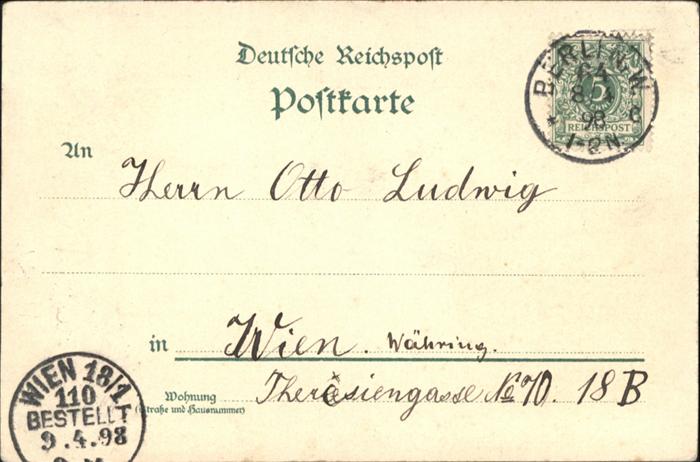 Deutsche Reichspost
Postkarte
BERLIN.W.
8 4
98
1-2N
5
REICHSPOST
An
Herrn Otto Ludwig
in Wien. Währing.
Wohnung
(Straße und Hausnummer)
Theresiengasse No 18 B
WIEN 18/1
110
BESTELLT
9.4.98